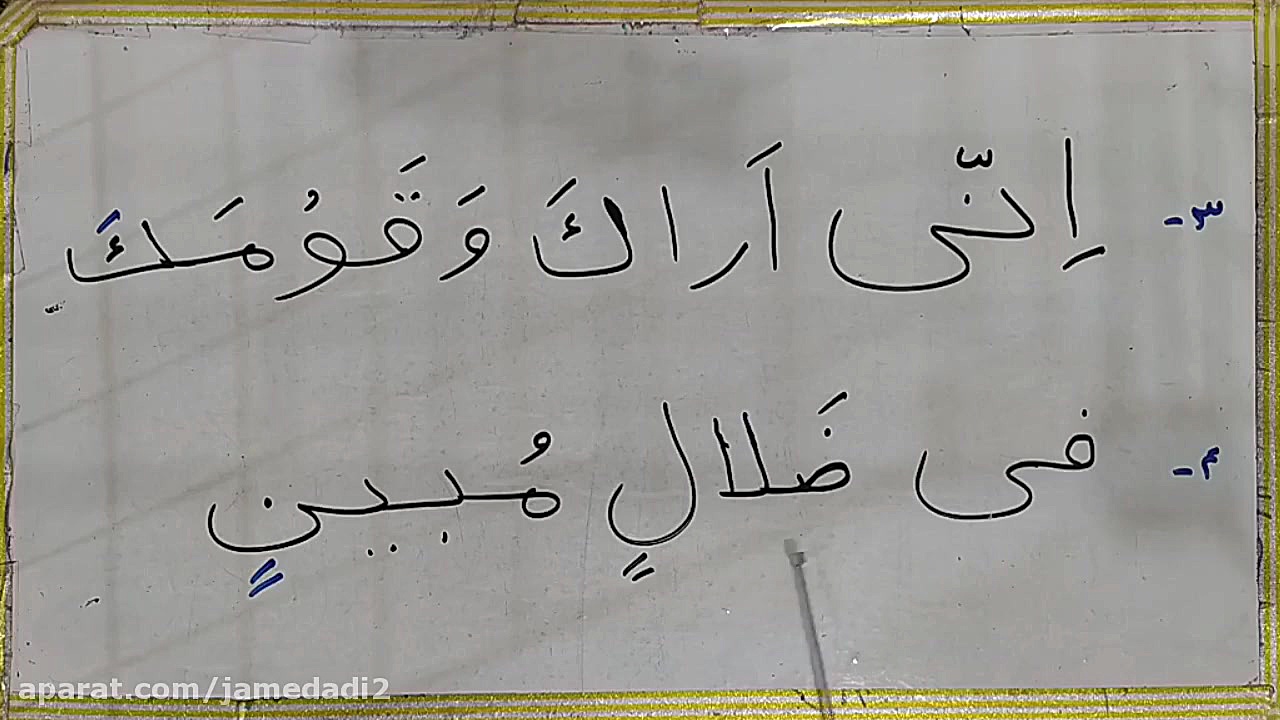 ۳- اِنّی اَراكَ وَ قَوْمَكَ
۴- فی ضَلالٍ مُبینٍ
aparat.com/jamedadi2